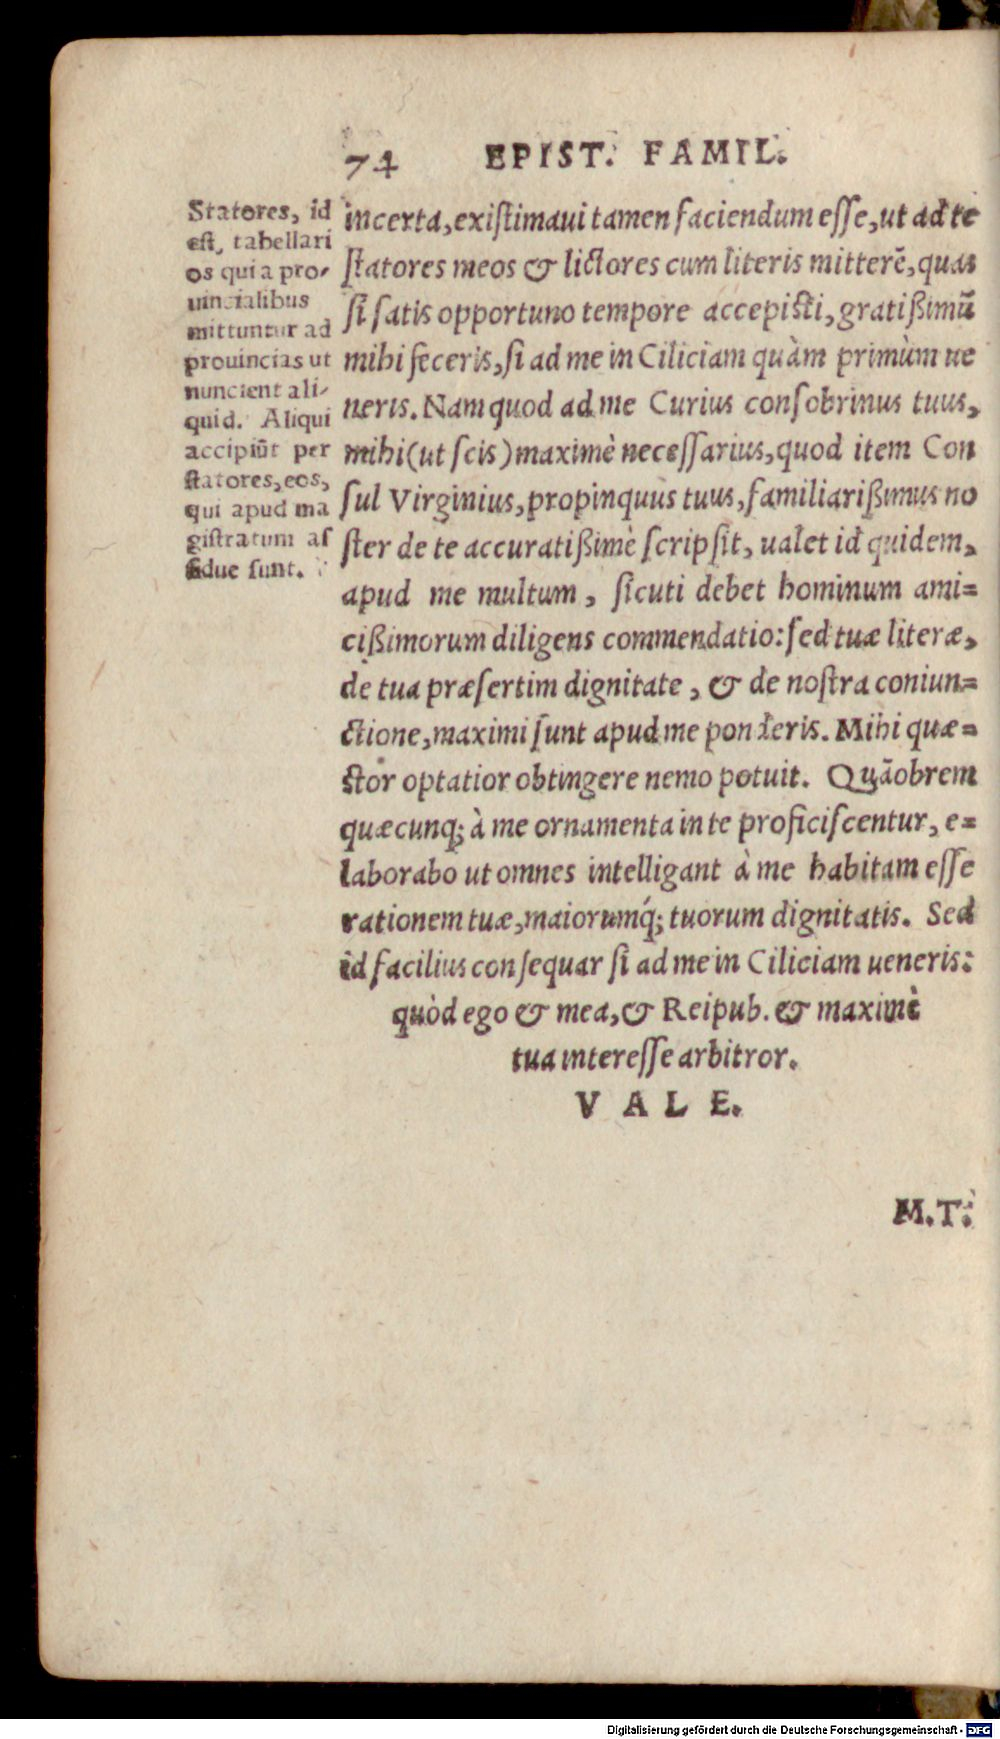 74 EPIST. FAMIL.
Statores, id
est, tabellari
os qui a pro-
uincialibus
mittuntur ad
prouincias ut
nuncient ali-
quid. Aliqui
accipiũt per
statores, eos,
qui apud ma
gistratum as
sidue sunt.
incerta, existimaui tamen faciendum esse, ut ad te
statores meos & lictores cum literis mitterẽ, quas
si satis opportuno tempore accepisti, gratißimũ
mihi feceris, si ad me in Ciliciam quàm primùm ue
neris. Nam quod ad me Curius consobrinus tuus,
mihi (ut scis) maximè necessarius, quod item Con
sul Virginius, propinquus tuus, familiarißimus no
ster de te accuratißimè scripsit, ualet id quidem,
apud me multum, sicuti debet hominum ami=
cißimorum diligens commendatio: sed tuæ literæ,
de tua præsertim dignitate, & de nostra coniun=
ctione, maximi sunt apud me ponderis. Mihi quæ=
stor optatior obtingere nemo potuit. Quãobrem
quæcunq; à me ornamenta in te proficiscentur, e=
laborabo ut omnes intelligant à me habitam esse
rationem tuæ, maiorumq́; tuorum dignitatis. Sed
id facilius consequar si ad me in Ciliciam ueneris:
quòd ego & mea, & Reipub. & maximè
tua interesse arbitror.
VALE.
M.T.
Digitalisierung gefördert durch die Deutsche Forschungsgemeinschaft - DFG